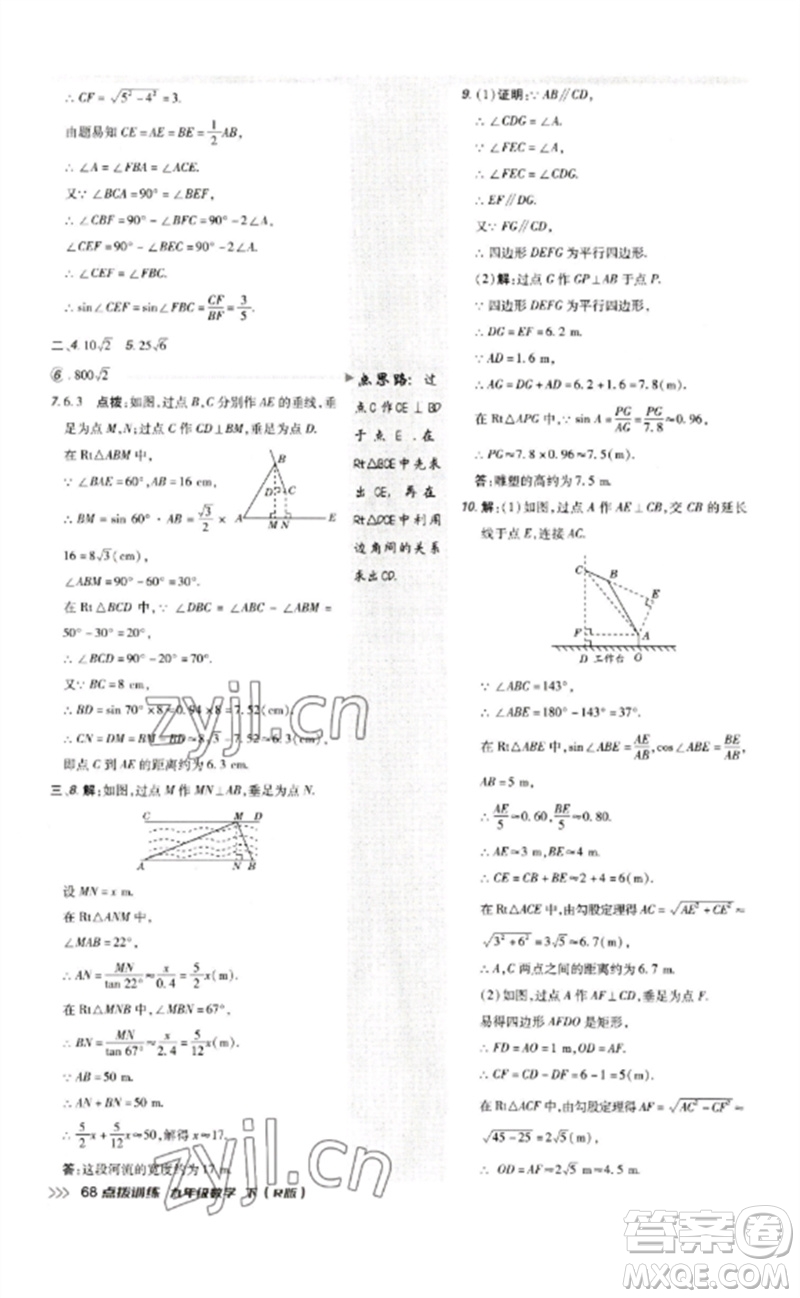 ∴ CF = √(5² − 4²) = 3.
由题易知 CE = AE = BE = 1/2 AB,
∴ ∠A = ∠FBA = ∠ACE.
又∵ ∠BCA = 90° = ∠BEF,
∴ ∠CBF = 90° − ∠ABC = 90° − 2∠A,
∠CEF = 90° − ∠BEC = 90° − 2∠A.
∴ ∠CEF = ∠FBC.
∴ sin∠CEF = sin∠FBC = CF/BF = 3/5.
二、4. 10√2 5. 25√6
6. 800√2
7. 6.3 点拨:如图,过点 B,C 分别作 AE 的垂线,垂
足为点 M,N;过点 C 作 CD⊥BM,垂足为点 D.
在 Rt△ABM 中,
∵ ∠BAE = 60°, AB = 16 cm,
∴ BM = sin 60° · AB = √3/2 ×
16 = 8√3 (cm),
∠ABM = 90° − 60° = 30°.
在 Rt△BCD 中,∵ ∠DBC = ∠ABC − ∠ABM =
50° − 30° = 20°,
∴ ∠BCD = 90° − 20° = 70°.
又∵ BC = 8 cm,
∴ BD = sin 70° × 8 ≈ 0.94 × 8 = 7.52(cm).
∴ CN = DM = BM − BD = 8√3 − 7.52 ≈ 6.3(cm),
即点 C 到 AE 的距离约为 6.3 cm.
三、8. 解:如图,过点 M 作 MN⊥AB,垂足为点 N.
C M D
A N B
设 MN = x m.
在 Rt△ANM 中,
∠MAB = 22°,
∴ AN = MN/tan 22° ≈ x/(2/5) = 5/2 x(m).
在 Rt△MNB 中, ∠MBN = 67°,
∴ BN = MN/tan 67° ≈ x/2.4 = 5/12 x(m).
∵ AB = 50 m,
∴ AN + BN = 50 m.
∴ 5/2 x + 5/12 x ≈ 50, 解得 x ≈ 17.
答:这段河流的宽度约为 17 m.
68 点拨训练 九年级数学 下(R版)
点思路:过
点C作CE⊥BD
于点E.在
Rt△BCE中先求
出CE,再在
Rt△DCE中利用
边角间的关系
求出CD.
9. (1) 证明:∵ AB∥CD,
∴ ∠CDG = ∠A.
∵ ∠FEC = ∠A,
∴ ∠FEC = ∠CDG.
∴ EF∥DG.
又∵ FG∥CD,
∴ 四边形 DEFG 为平行四边形.
(2) 解:过点 G 作 GP⊥AB 于点 P.
∵ 四边形 DEFG 为平行四边形,
∴ DG = EF = 6.2 m.
∵ AD = 1.6 m,
∴ AG = DG + AD = 6.2 + 1.6 = 7.8(m).
在 Rt△APG 中,∵ sin A = PG/AG = PG/7.8 ≈ 0.96,
∴ PG ≈ 7.8 × 0.96 ≈ 7.5(m).
答:雕塑的高约为 7.5 m.
10. 解:(1) 如图,过点 A 作 AE⊥CB,交 CB 的延长
线于点 E,连接 AC.
C B E
F A
D 工作台 O
∵ ∠ABC = 143°,
∴ ∠ABE = 180° − 143° = 37°.
在 Rt△ABE 中,sin∠ABE = AE/AB, cos∠ABE = BE/AB,
∴ AE/5 ≈ 0.60, BE/5 ≈ 0.80.
∴ AE ≈ 3 m, BE ≈ 4 m.
∴ CE = CB + BE ≈ 6 m.
在 Rt△ACE 中,由勾股定理得 AC = √(AE² + CE²) ≈
√(3² + 6²) = 3√5 ≈ 6.7(m).
∴ A,C 两点之间的距离约为 6.7 m.
(2) 如图,过点 A 作 AF⊥CD,垂足为点 F.
易得四边形 AFDO 是矩形,
∴ FD = AO = 1 m, OD = AF.
∴ CF = CD − FD = 6 − 1 = 5(m).
在 Rt△ACF 中,由勾股定理得 AF = √(AC² − CF²) ≈
√(45 − 25) = 2√5(m).
∴ OD = AF ≈ 2√5 ≈ 4.5(m).
zyjl.cn
zyjl.cn
答案卷
MXQE.COM